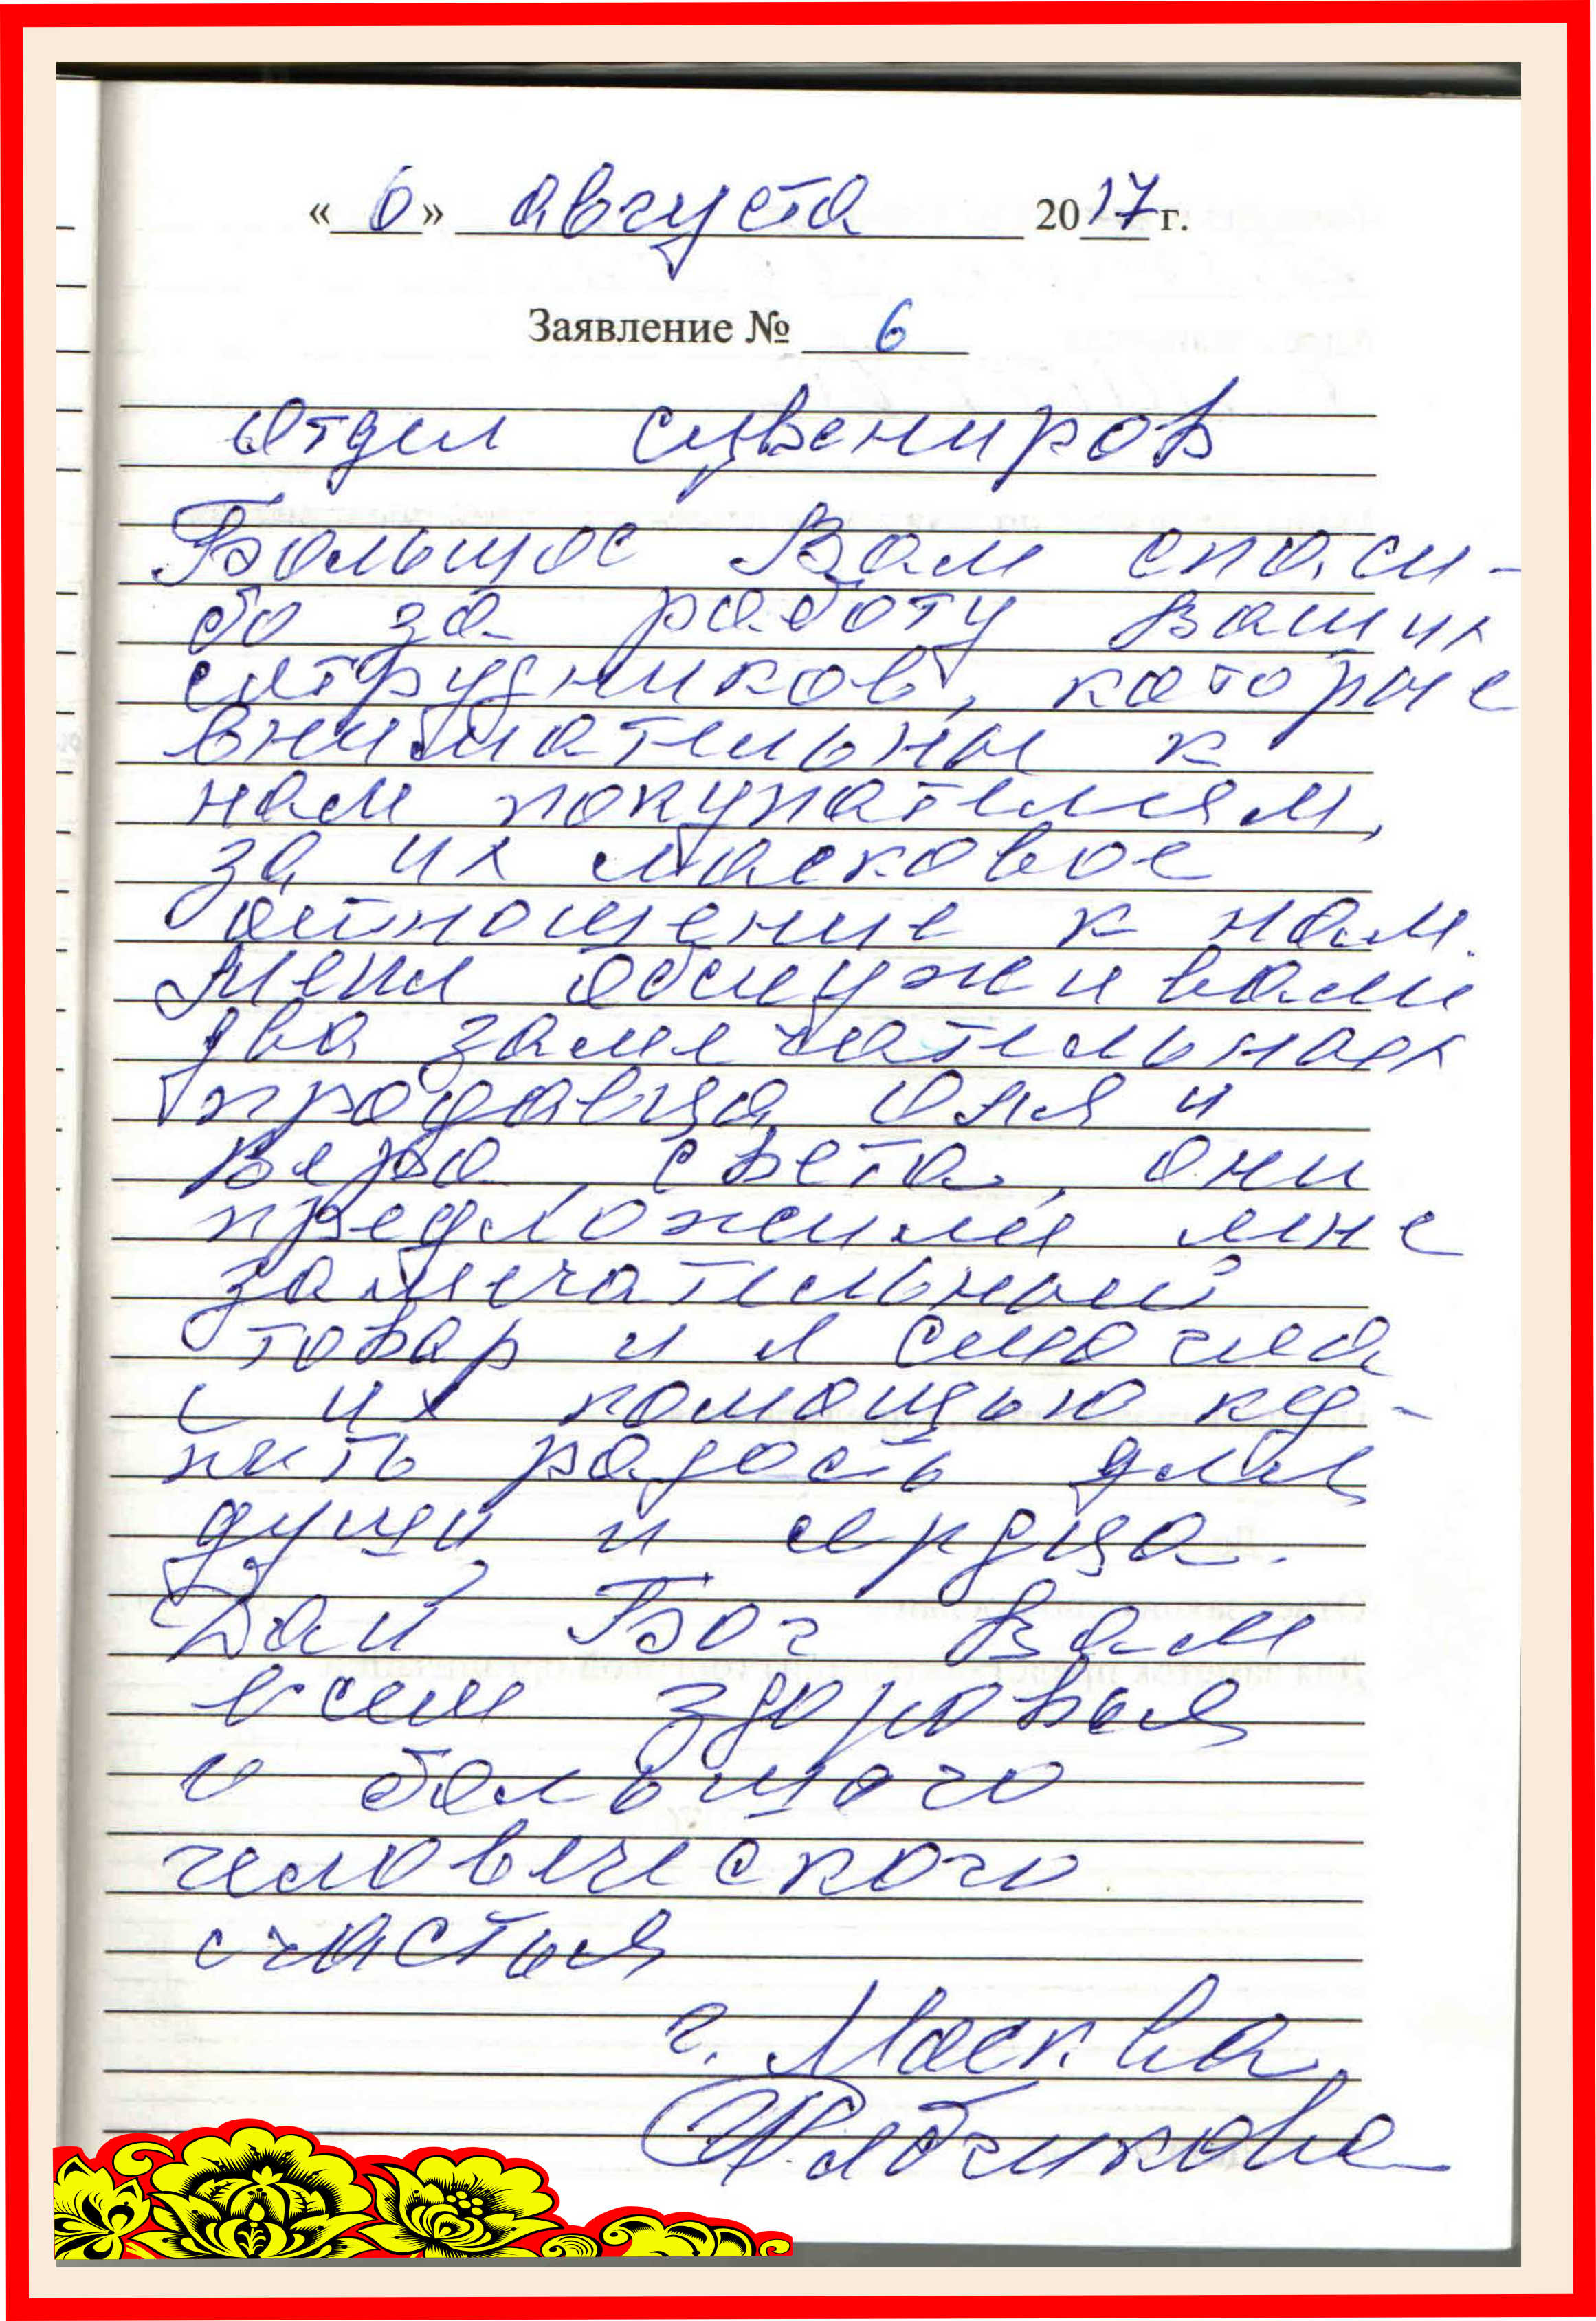 « 6 » августа 2017 г.
Заявление № 6
Отдел сувениров
Большое Вам спаси-
бо за работу Ваших
сотрудников, которые
внимательны к
нам покупателям,
за их ласковое
отношение к нам.
Меня обслуживали
два замечательных
продавца Оля и
Вера, Света, они
предложили мне
замечательный
товар и я смогла
с их помощью ку-
пить радость для
души и сердца.
Дай Бог Вам
всем здоровья
и большого
человеческого
счастья
г. Москва,